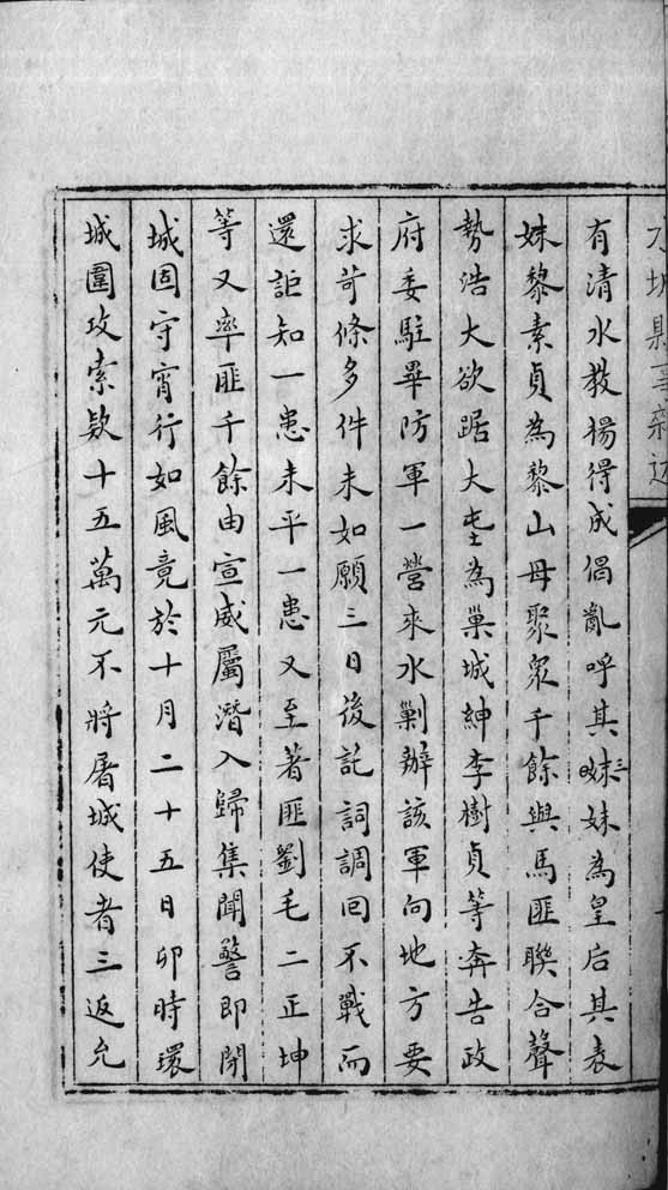 有清水教楊得成倡亂呼其三妹妹為皇后其表
妹黎素貞為黎山母聚衆千餘與馬匪聯合聲
勢浩大欲踞大屯為巢城紳李樹貞等奔告政
府委駐畢防軍一營來水剿辦該軍向地方要
求苛條多件未如願三日後託詞調回不戰而
還詎知一患未平一患又至著匪劉毛二正坤
等又率匪千餘由宣威屬潛入歸集聞警即閉
城固守宵行如風竟於十月二十五日卯時環
城圍攻索欵十五萬元不將屠城使者三返允